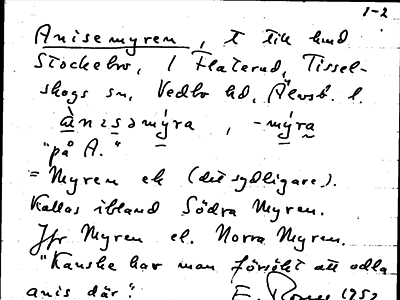 1-2
Anisemyren, t till hmd
Stockebo, 1 Flaterud, Tissel-
skogs sn, Vedbo hd, Älvsb. l.
ànisəmýra, -mýra
"på A."
= Myren ek (det sydligare).
Kallas ibland Södra Myren.
Jfr Myren el. Norra Myren.
"Kanske har man försökt att odla
anis där".
E. 1952